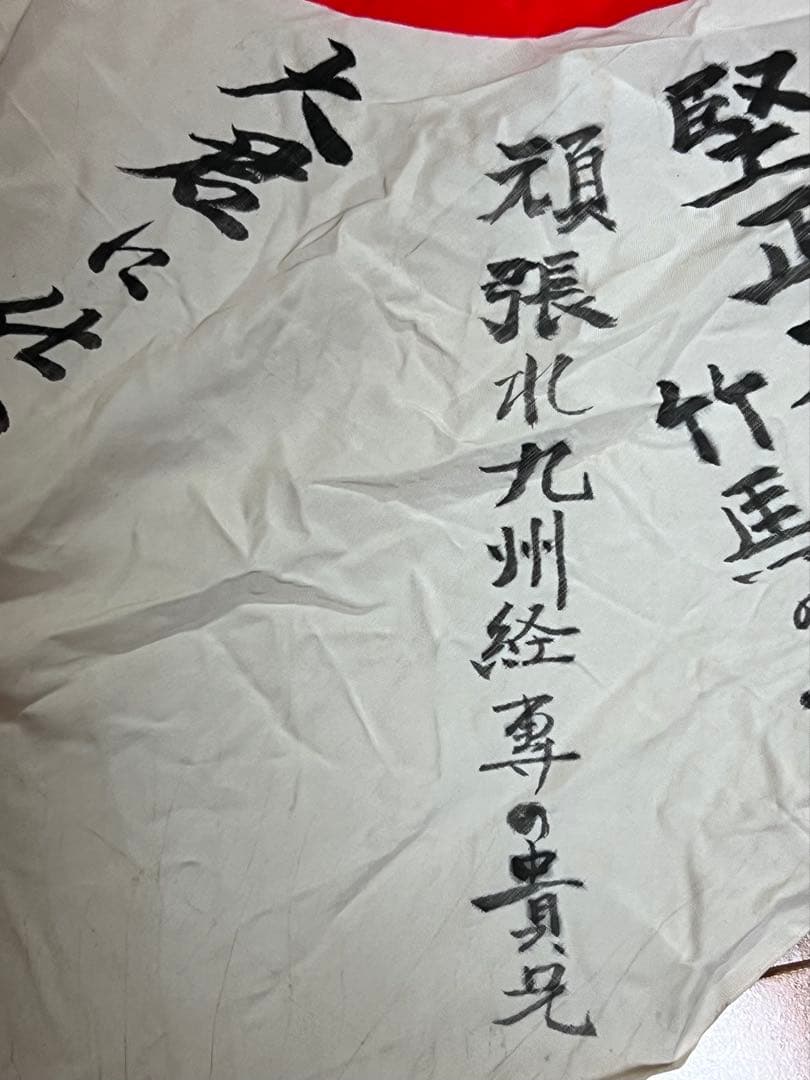 堅正
竹馬の
頑張北九州経専の貴兄
大君に